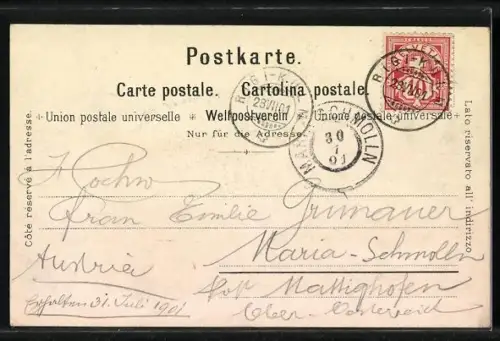 Postkarte.
Carte postale. Cartolina postale.
Union postale universelle * Weltpostverein * Unione postale universale
Nur für die Adresse.
Côté réservé à l'adresse.
Lato riservato all' indirizzo.
HELVETIA
RIGI-K
28.VII.01
RIGI-K
28.VII.01
MARIA-SCHMOLLN
30
7
01
Frau Emilie Grünauer
Maria-Schmolln
Post Mattighofen
Austria
Ober-Oesterreich
Erhalten 31. Juli 1901